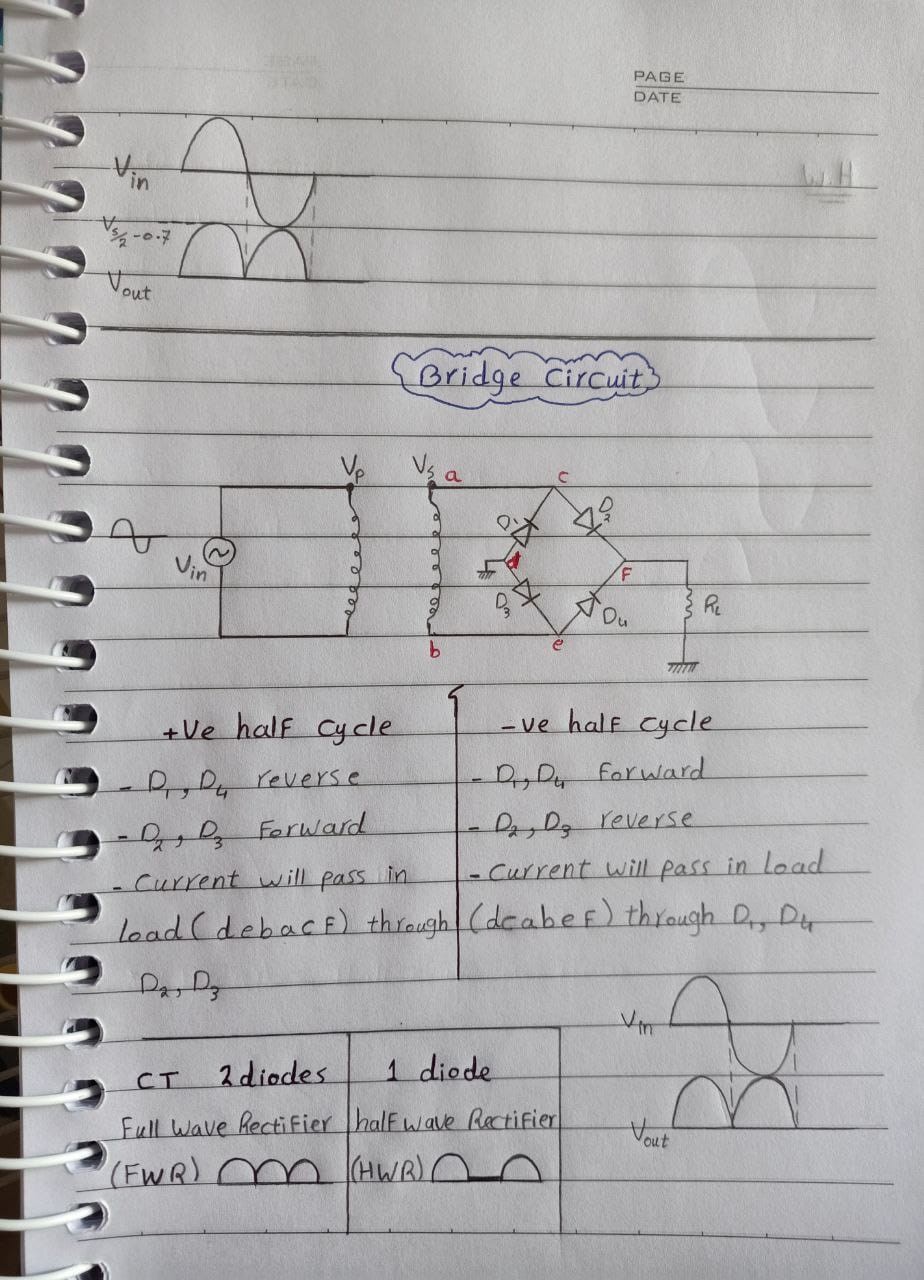 PAGE
DATE
W.H
Vin
Vs/2 -0.7
Vout
Bridge Circuit
Vp
Vs a
c
D1
D2
Vin
d
F
D3
D4
RL
b
e
+ve half cycle
- D1, D4 reverse
- D2, D3 Forward
- Current will pass in
load (debacF) through
D2, D3
-ve half cycle
- D1, D4 Forward
- D2, D3 reverse
- Current will pass in load
(dcabeF) through D1, D4
Vin
Vout
CT 2 diodes
Full wave Rectifier
(FWR)
1 diode
half wave Rectifier
(HWR)